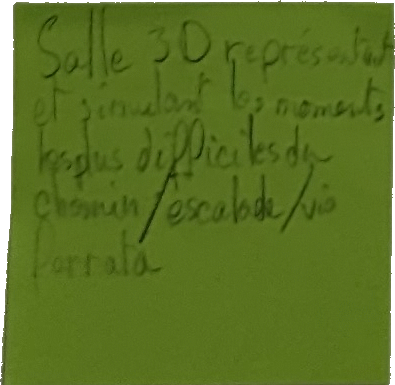 Salle 3D représentant
et simulant les moments
les plus difficiles du
chemin/escalade/via
ferrata